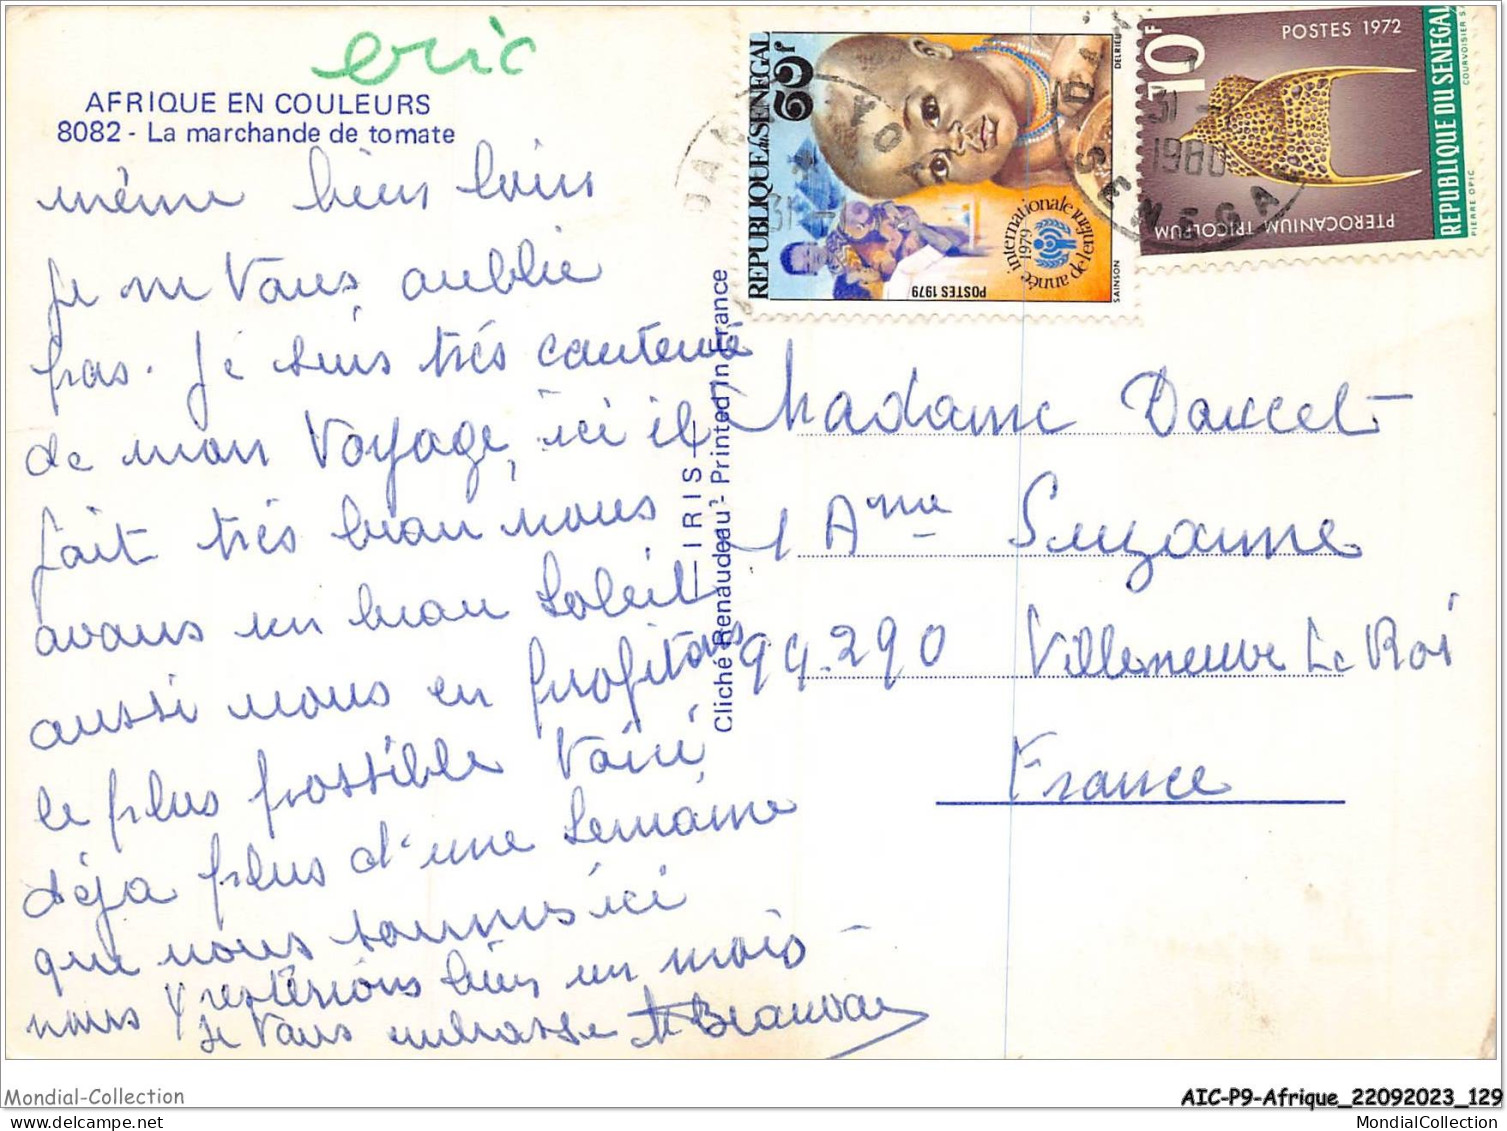 eric
AFRIQUE EN COULEURS
8082 - La marchande de tomate
même bien loin
je ne vous oublie
pas. Je suis très contente
de mon voyage, ici il
fait très beau nous
avons un beau soleil
aussi nous en profitons
le plus possible voici
déja plus d'une semaine
que nous sommes ici
nous y resterions bien un mois
Je vous embrasse
IRIS
Cliché Renaudeau - Printed in France
REPUBLIQUE du SENEGAL
année internationale de l'enfant
1979
POSTES 1979
SAINSON
DELRIEU
10F
POSTES 1972
REPUBLIQUE DU SENEGAL
PTEROCANIUM TRICOLPUM
PIERRE OPIC
31
1980
SENEGAL
Madame Doucet
1 Ane Suzanne
94.290 Villeneuve Le Roi
France
Mondial-Collection
AIC-P9-Afrique_22092023_129
MondialCollection.com